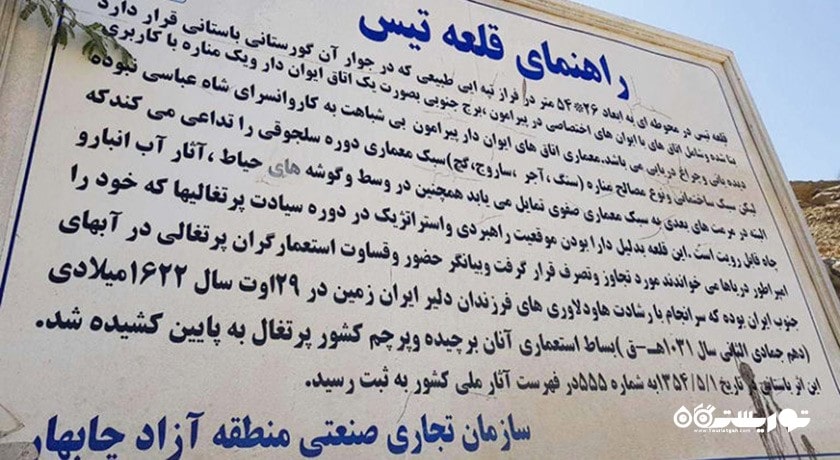 راهنمای قلعه تیس
قلعه تیس در محوطه ای به ابعاد ۲۶*۵۴ متر در فراز تپه ایی طبیعی که در جوار آن گورستانی باستانی قرار دارد
بنا شده وشامل اتاق های با ایوان های اختصاصی در پیرامون ،برج جنوبی بصورت یک اتاق ایوان دار ویک مناره با کاربری
دیده بانی وچراغ دریایی می باشد.معماری اتاق های ایوان دار پیرامون بی شباهت به کاروانسرای شاه عباسی نبوده
لیکن سبک ساختمانی ونوع مصالح مناره (سنگ ،آجر ،ساروج،گچ)سبک معماری دوره سلجوقی را تداعی می کندکه
البته در مرمت های بعدی به سبک معماری صفوی تمایل می یابد همچنین در وسط وگوشه های حیاط ،آثار آب انبارو
چاه قابل رویت است .این قلعه بدلیل دارا بودن موقعیت راهبردی واستراتژیک در دوره سیادت پرتغالیها که خود را
امپراطور دریاها می خواندند مورد تجاوز وتصرف قرار گرفت وبیانگر حضور وقساوت استعمارگران پرتغالی در آبهای
جنوب ایران بوده که سرانجام با رشادت هاودلاوری های فرزندان دلیر ایران زمین در ۲۹اوت سال ۱۶۲۲میلادی
(دهم جمادی الثانی سال ۱۰۳۱هــق )بساط استعماری آنان برچیده وپرچم کشور پرتغال به پایین کشیده شد.
این اثر باستانی در تاریخ ۱۳۵۴/۵/۱به شماره ۵۵۵در فهرست آثار ملی کشور به ثبت رسید.
سازمان تجاری صنعتی منطقه آزاد چابهار
توریستگاه
www.Touristgah.com